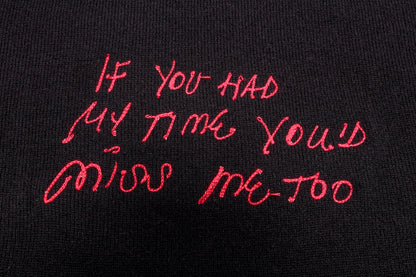 IF YOU HAD
MY TIME YOU'D
MISS ME TOO